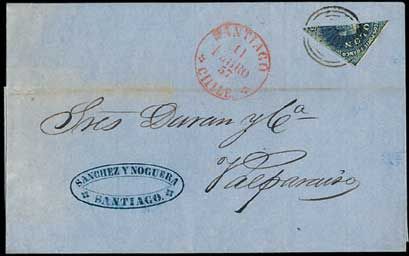 SANTIAGO
11
57
CHILE
Sres Duran y Cª
Valparaiso
SANCHEZ Y NOGUERA
SANTIAGO.